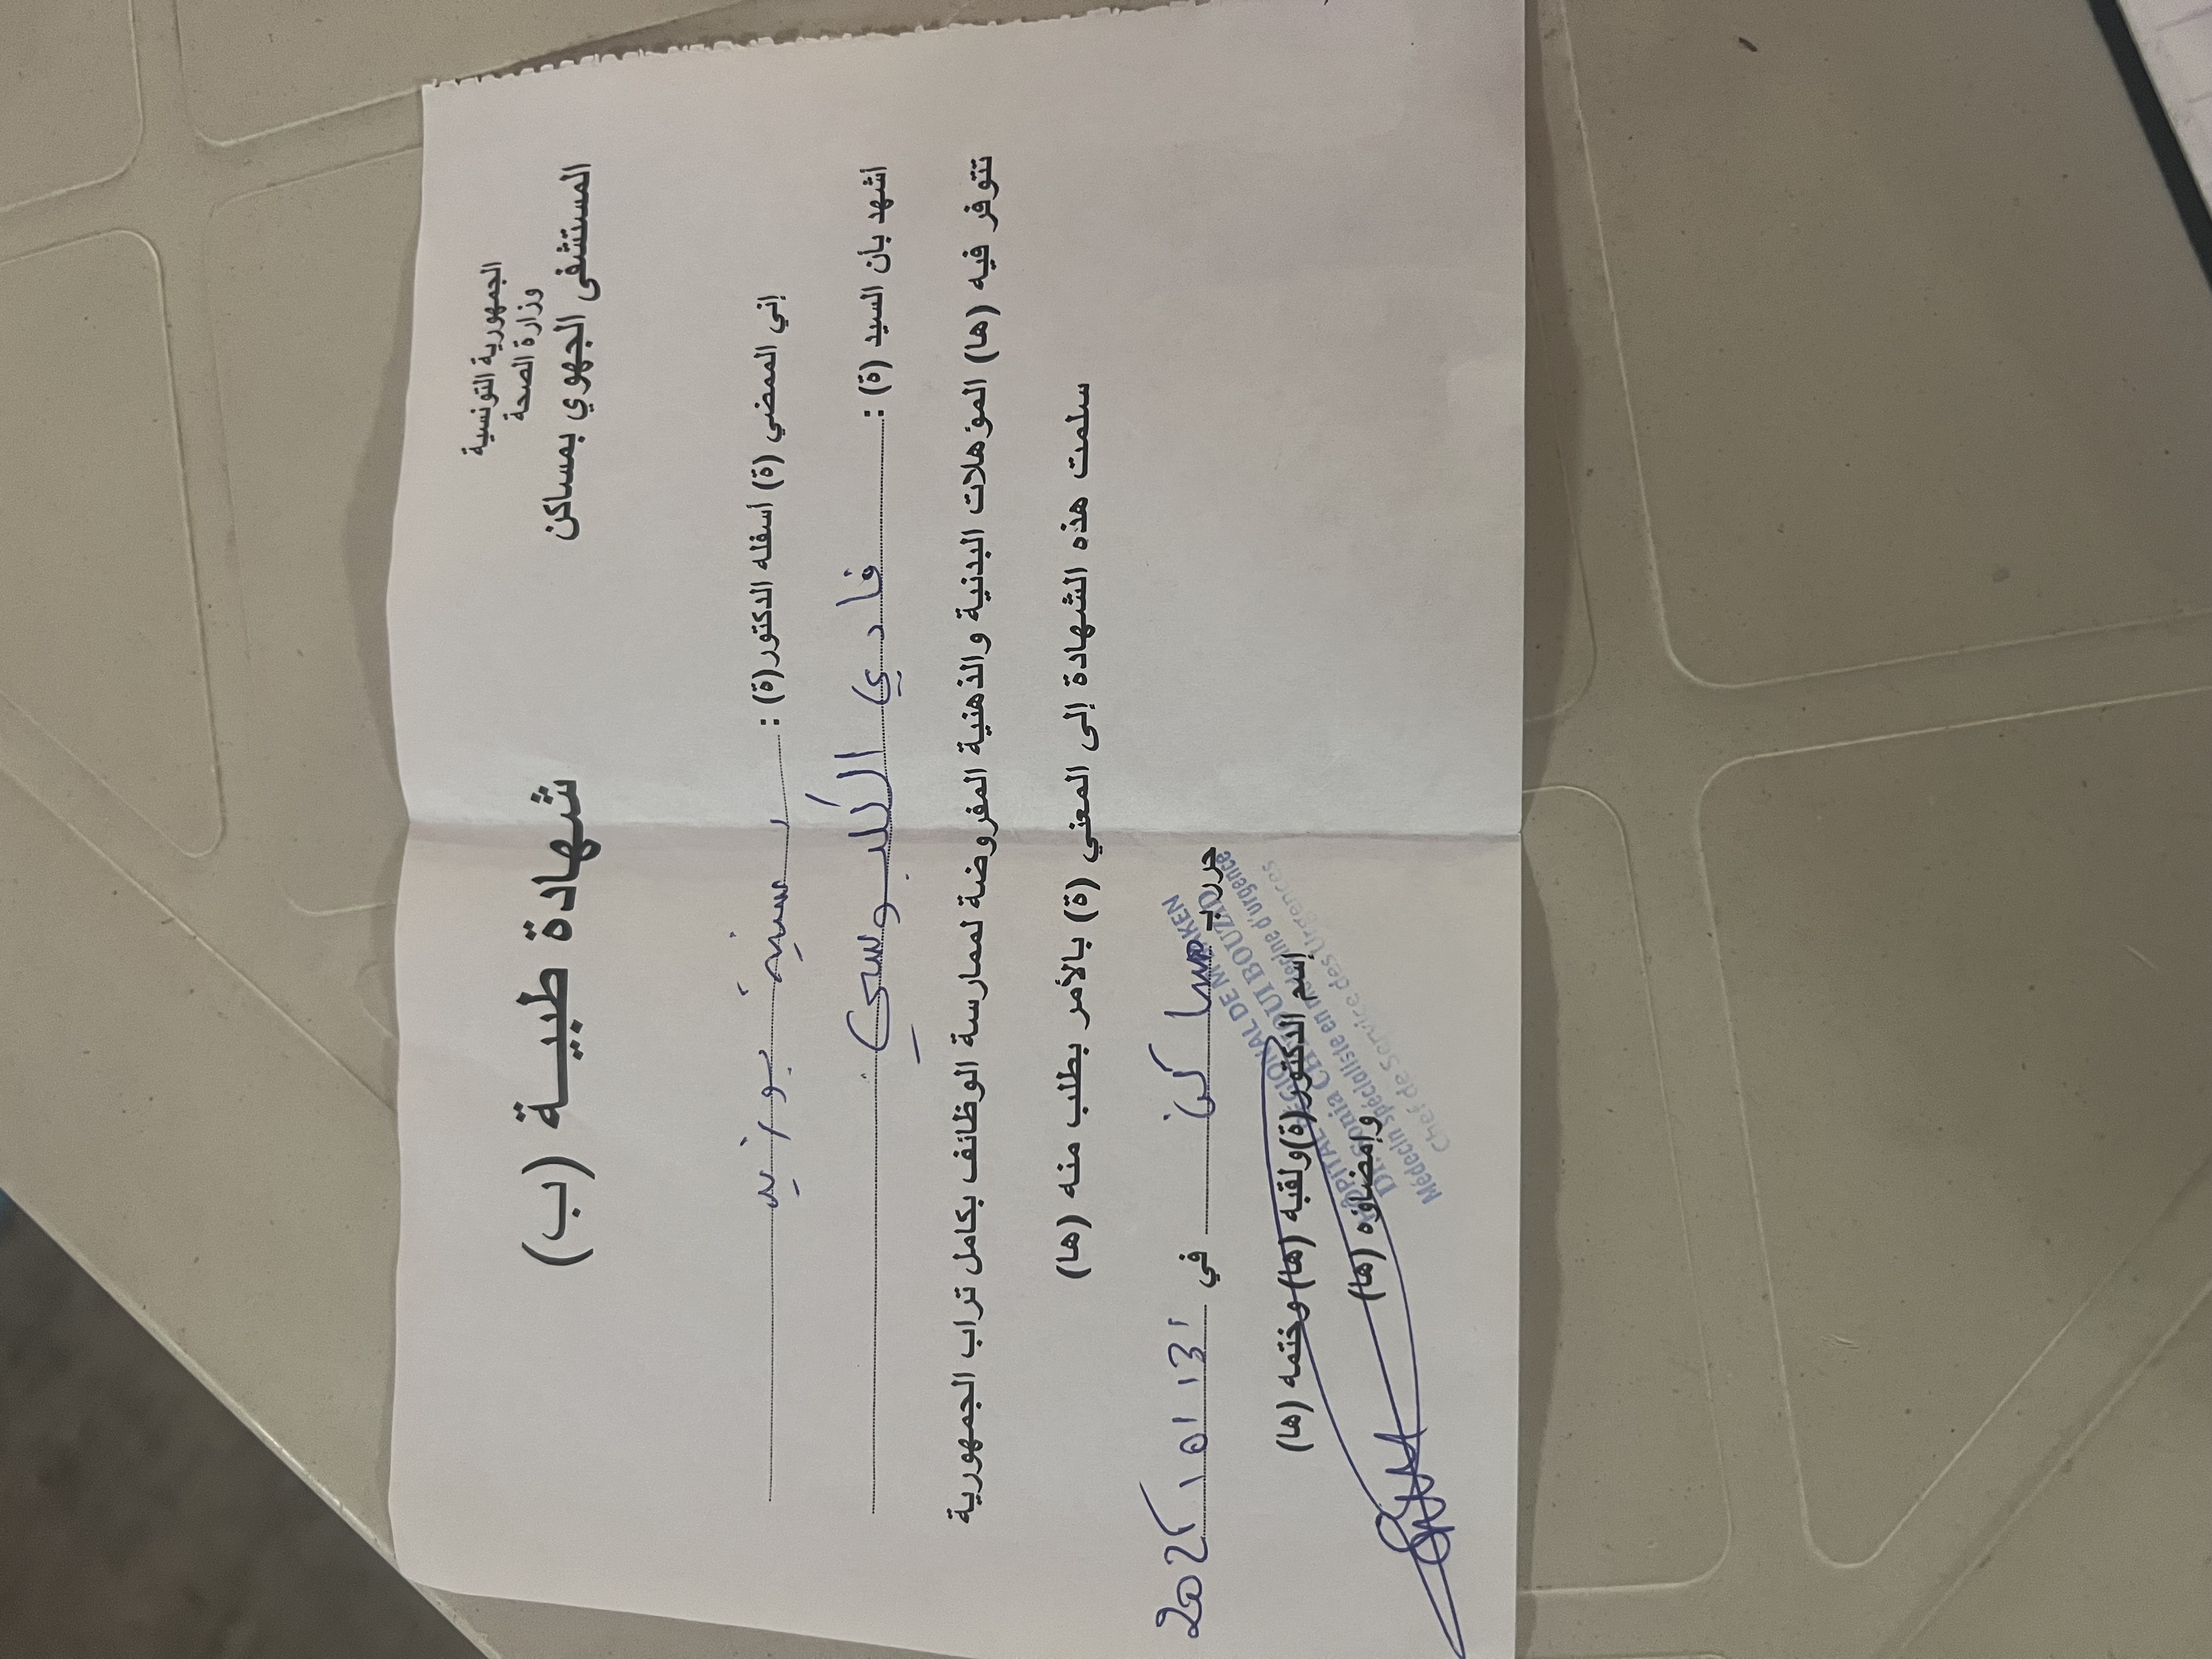 الجمهورية التونسية
وزارة الصحة
المستشفى الجهوي بمساكن
شهادة طبية (ب)
إني الممضي (ة) أسفله الدكتور(ة) :
أشهد بأن السيد (ة) : فادي
تتوفر فيه (ها) المؤهلات البدنية والذهنية المفروضة لممارسة الوظائف بكامل تراب الجمهورية
سلمت هذه الشهادة إلى المعني (ة) بالأمر بطلب منه (ها)
حرر بـ مساكن في
إسم الدكتور(ة)ولقبه (ها) وختمه (ها)
وإمضاؤه (ها)
HÔPITAL REGIONAL DE M'SAKEN
Dr. Sonia BOUZID
Médecin spécialiste en médecine d'urgence
Chef de Service des Urgences